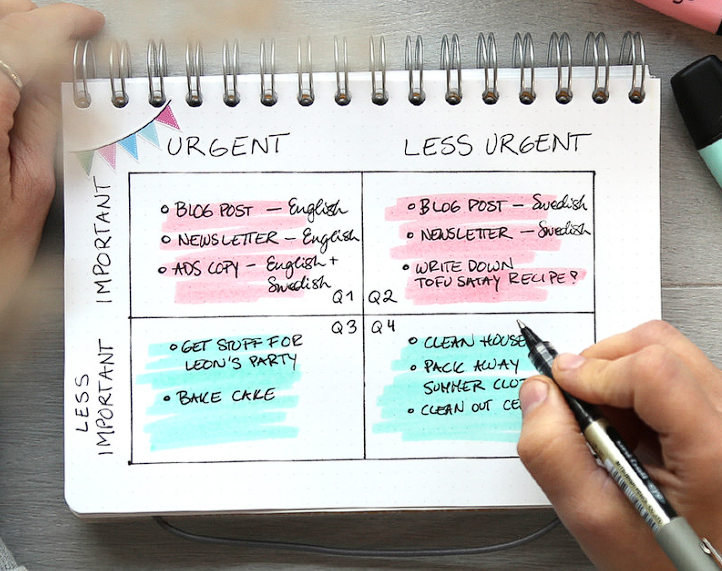 URGENT
LESS URGENT
IMPORTANT
BLOG POST – English
NEWSLETTER – English
ADS COPY – English +
Swedish
Q1
BLOG POST – Swedish
NEWSLETTER – Swedish
WRITE DOWN
TOFU SATAY RECIPE?
Q2
LESS
IMPORTANT
Q3
GET STUFF FOR
LEON'S PARTY
BAKE CAKE
Q4
CLEAN HOUSE
PACK AWAY
SUMMER
CLEAN OUT